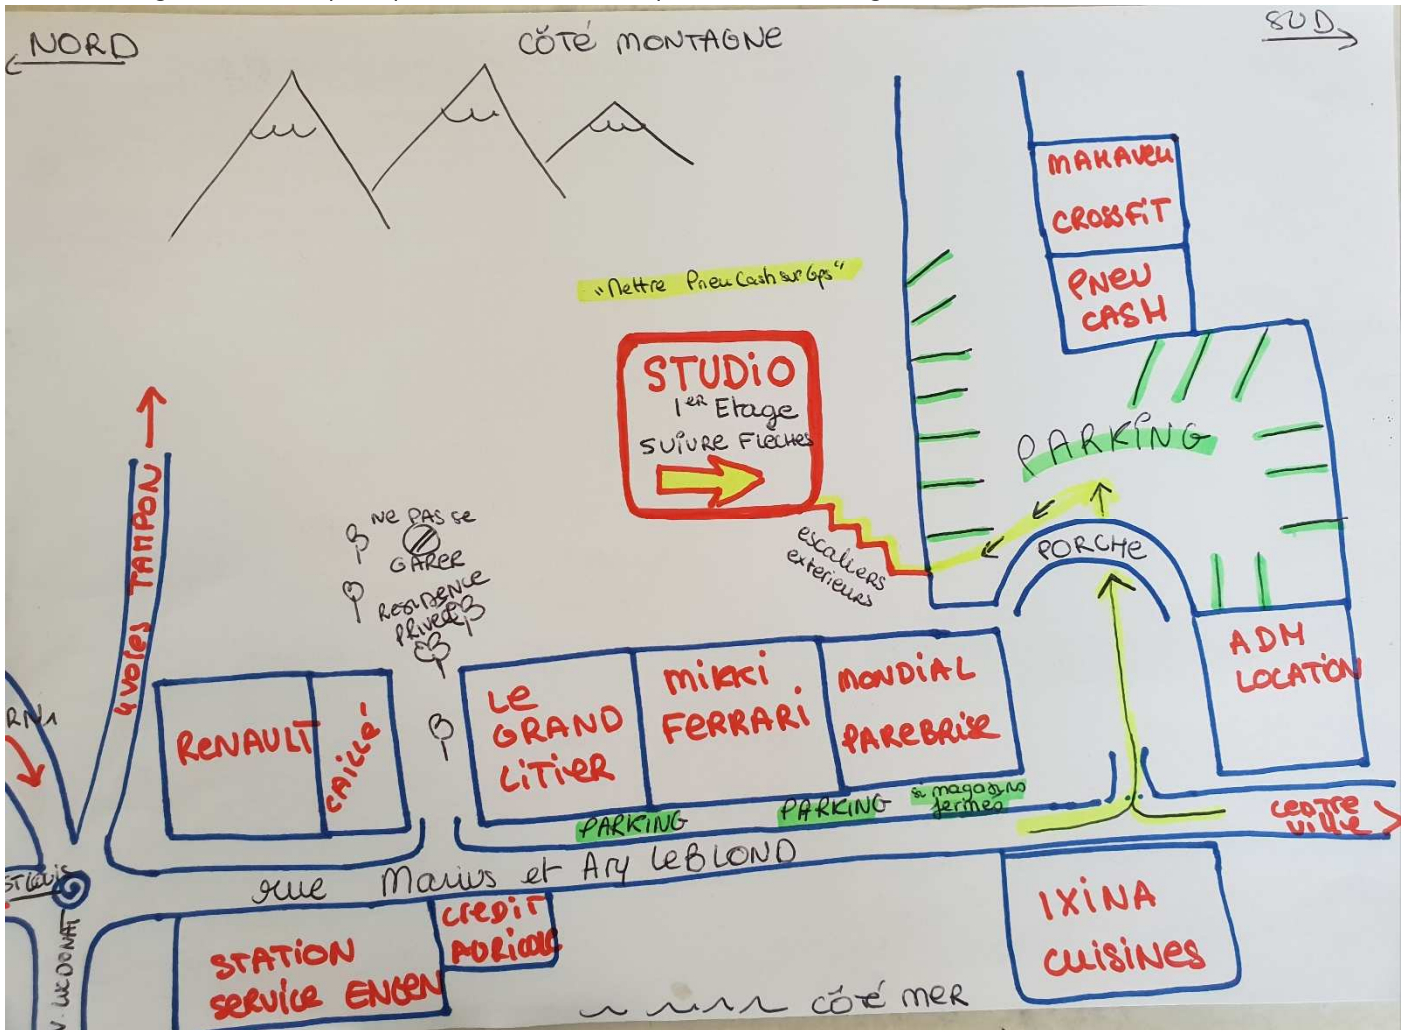 NORD
CÔTÉ MONTAGNE
SUD
MAKAVELI
CROSSFIT
PNEU
CASH
"Mettre Pneu Cash sur Gps"
STUDIO
1er Etage
SUIVRE FLECHES
PARKING
PORCHE
escaliers
exterieurs
4 voies TAMPON
NE PAS SE
GARER
RESIDENCE
PRIVEE
RN1
RENAULT
CAILLE
LE
GRAND
LITIER
MIKKI
FERRARI
MONDIAL
PAREBRISE
ADM
LOCATION
PARKING
PARKING
si magasins
fermés
CENTRE
VILLE
rue Marius et Ary LEBLOND
ST LOUIS
STATION
SERVICE ENGEN
CREDIT
AGRICOLE
IXINA
CUISINES
CÔTÉ MER